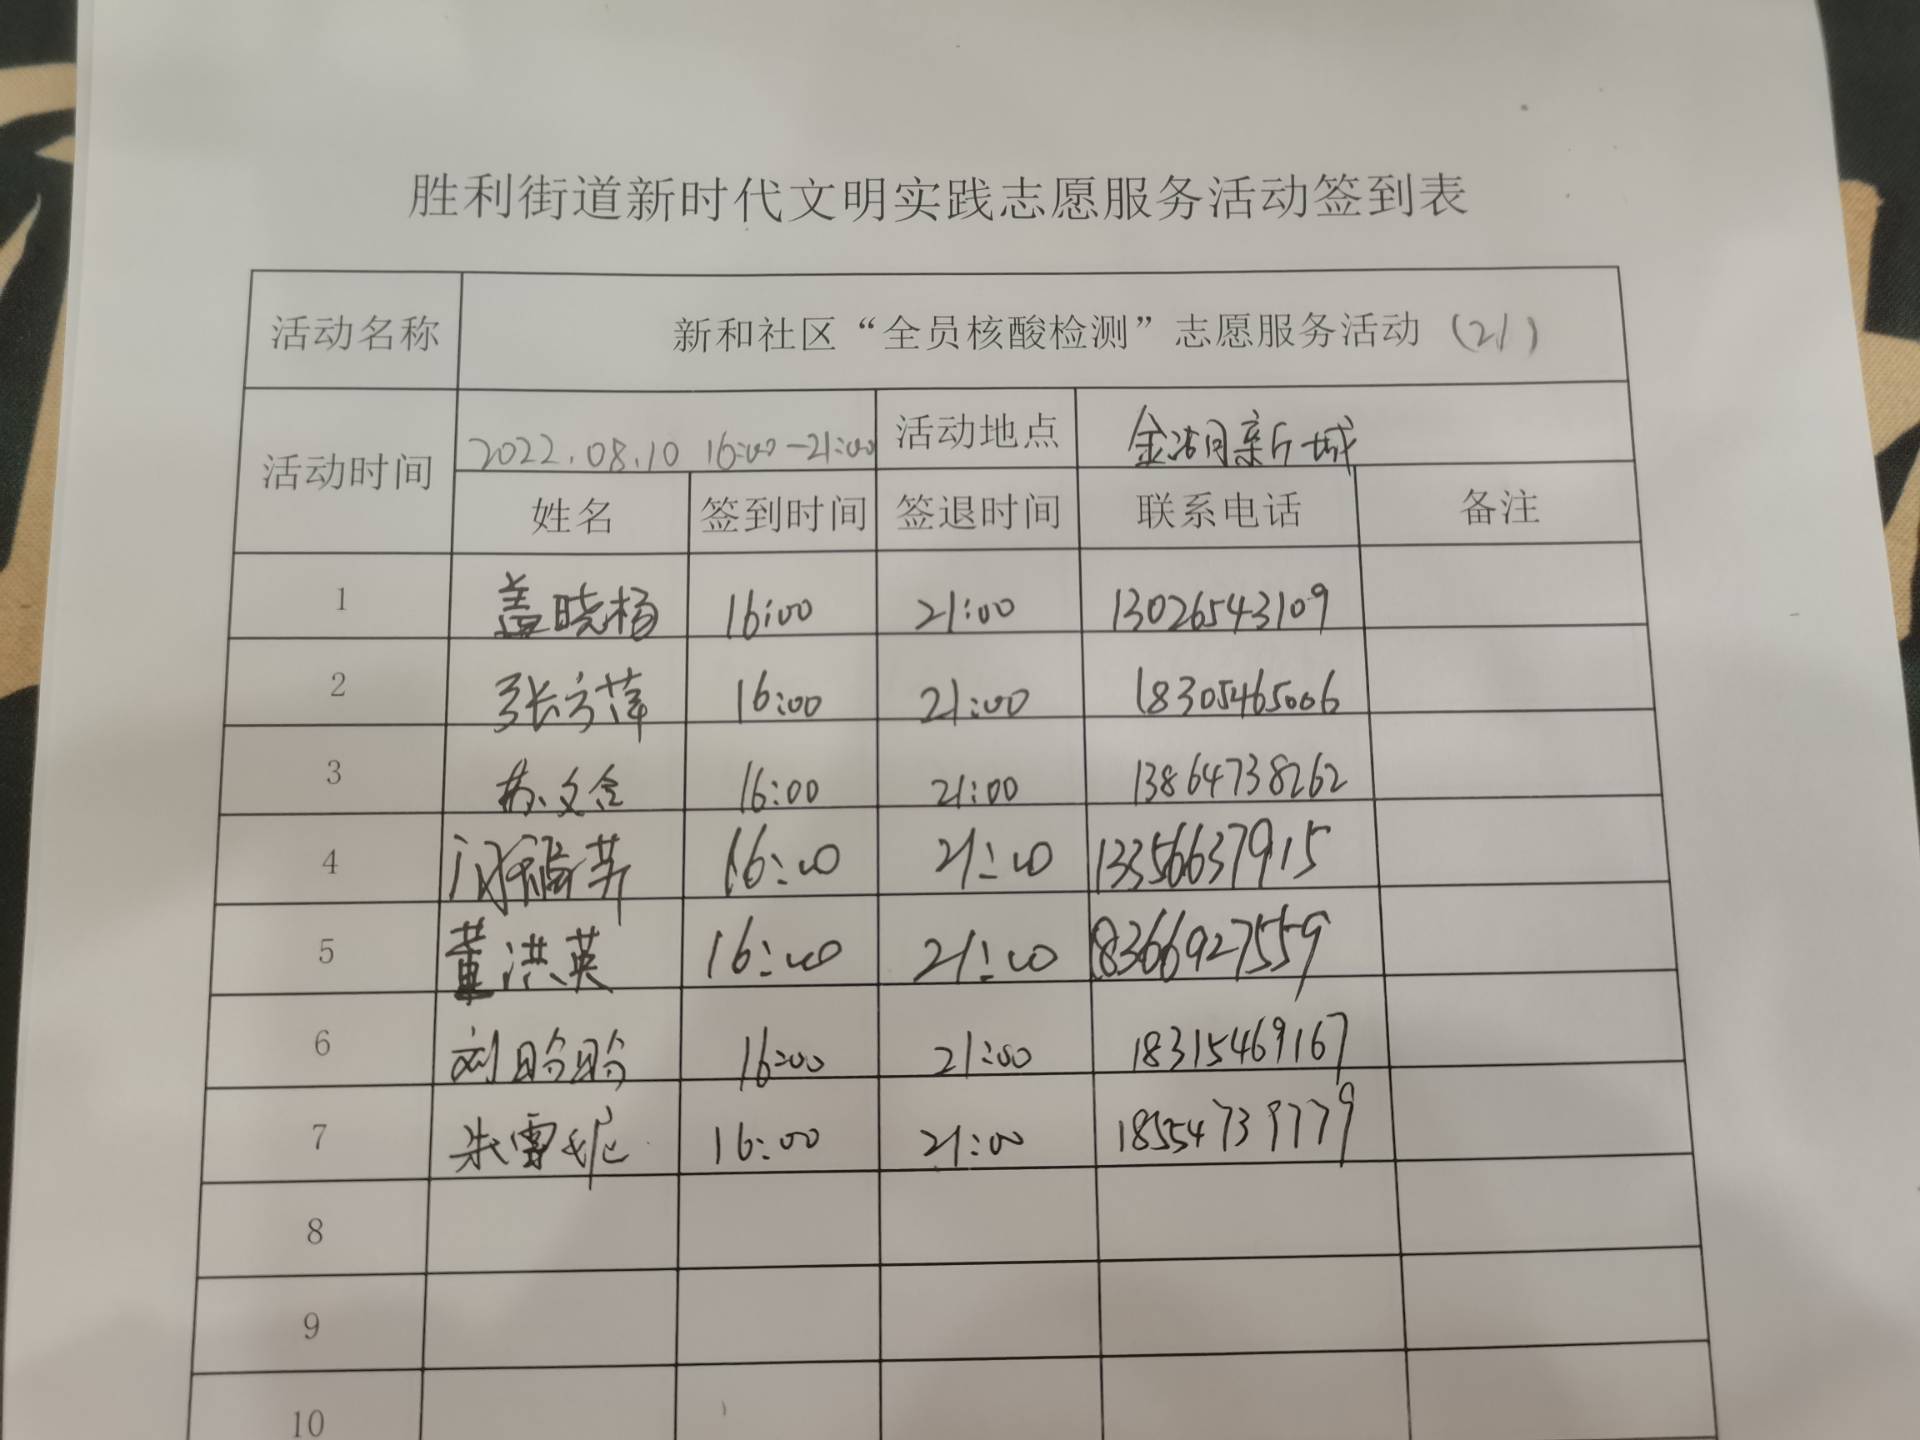 胜利街道新时代文明实践志愿服务活动签到表
活动名称 新和社区“全员核酸检测”志愿服务活动 (21)
活动时间 2022.08.10 16:00-21:00 活动地点 金湖新城
姓名 签到时间 签退时间 联系电话 备注
1 盖晓杨 16:00 21:00 13026543109
2 张方萍 16:00 21:00 18305465006
3 16:00 21:00 13864738262
4 16:00 21:00 13356637915
5 董洪英 16:00 21:00 18366927559
6 刘盼盼 16:00 21:00 18315469167
7 朱雪妮 16:00 21:00 18554739779
8
9
10